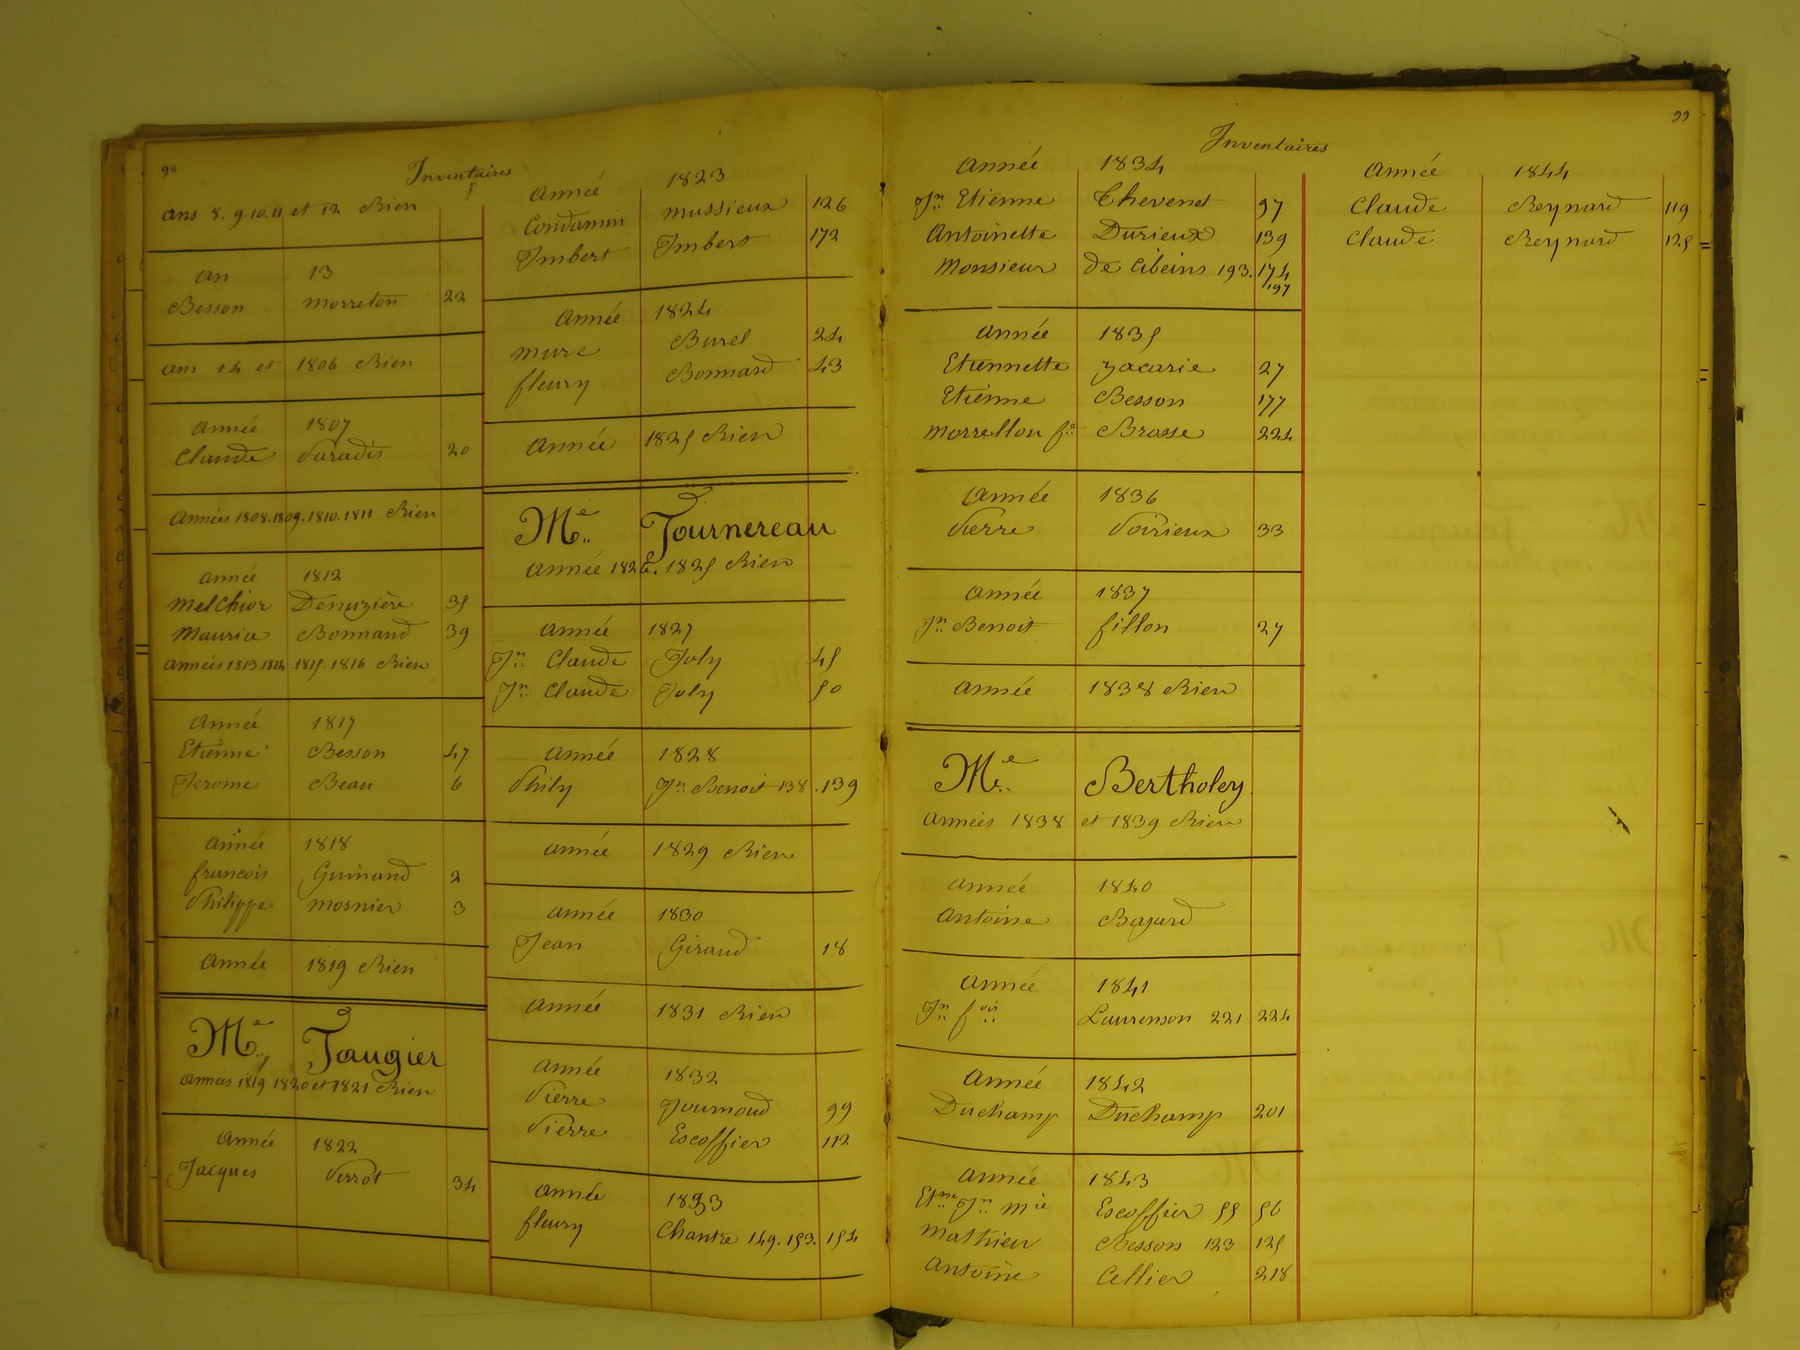 98
Inventaires
ans 8. 9. 10. 11 et 12 Rien
an 13
Besson Morreton 22
ans 14 et 1806 Rien
Année 1807
Claude Paradis 20
Années 1808. 1809. 1810. 1811 Rien
Année 1812
Melchior Denuzière 35
Maurice Bonnand 39
Années 1813. 1814. 1815. 1816 Rien
Année 1817
Etienne Besson 47
Jerome Beau 6
Année 1818
françois Guinand 2
Philippe Mosnier 3
Année 1819 Rien
Me Taugier
Années 1819 1820 et 1821 Rien
Année 1822
Jacques Perrot 34
Année 1823
Condamin Mussieux 126
Imbert Imbert 172
Année 1824
Mure Burel 24
fleury Bonnard 43
Année 1825 Rien
Me Tournereau
Année 1826. 1825 Rien
Année 1827
Jn Claude Joly 45
Jn Claude Joly 50
Année 1828
Phily Jn Benoit 138. 139
Année 1829 Rien
Année 1830
Jean Giraud 18
Année 1831 Rien
Année 1832
Pierre Journoud 99
Pierre Escoffier 112
Année 1833
fleury Chantre 149. 153. 154
99
Inventaires
Année 1834
Jn Etienne Thevenet 97
Antoinette Durieux 139
Monsieur de Cibeins 193. 174
197
Année 1835
Etiennette Zacarie 27
Etienne Besson 177
Morrellon fe Brosse 224
Année 1836
Pierre Poirieux 33
Année 1837
Jn Benoit fillon 27
Année 1838 Rien
Me Bertholey
Années 1838 et 1839 Rien
Année 1840
Antoine Bajard
Année 1841
Jn fois Laurenson 221 224
Année 1842
Duchamp Duchamp 201
Année 1843
Etne Jn Mie Escoffier 55 56
Mathieu Besson 123 125
Antoine Cellier 218
Année 1844
Claude Reynard 119
Claude Reynard 125